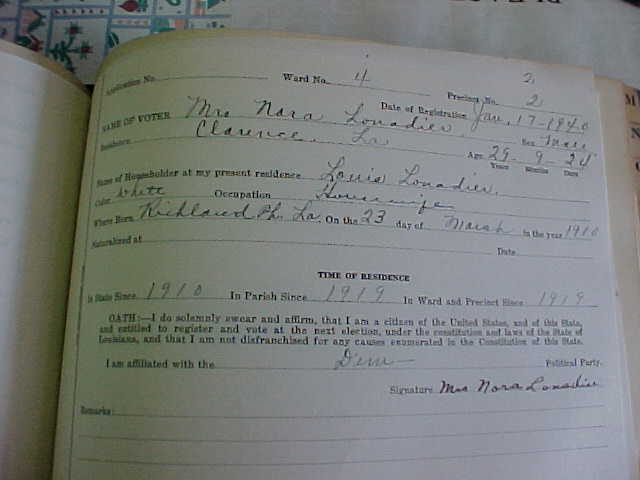 Application No.
Ward No. 4
2
Precinct No. 2
Date of Registration Jan. 17-1940
NAME OF VOTER Mrs Nora Lonadier
Sex
Residence Clarence, La
Age 29 - 9 - 24
Years Months Days
Name of Householder at my present residence Louis Lonadier.
Color White Occupation Housewife
Where Born Richland Ph. La. On the 23 day of Marsh in the year 1910
Naturalized at Date
TIME OF RESIDENCE
In State Since 1910 In Parish Since 1919 In Ward and Precinct Since 1919
OATH:—I do solemnly swear and affirm, that I am a citizen of the United States, and of this State,
and entitled to register and vote at the next election, under the constitution and laws of the State of
Louisiana, and that I am not disfranchised for any causes enumerated in the Constitution of this State.
I am affiliated with the Dem Political Party.
Signature Mrs Nora Lonadier
Remarks: